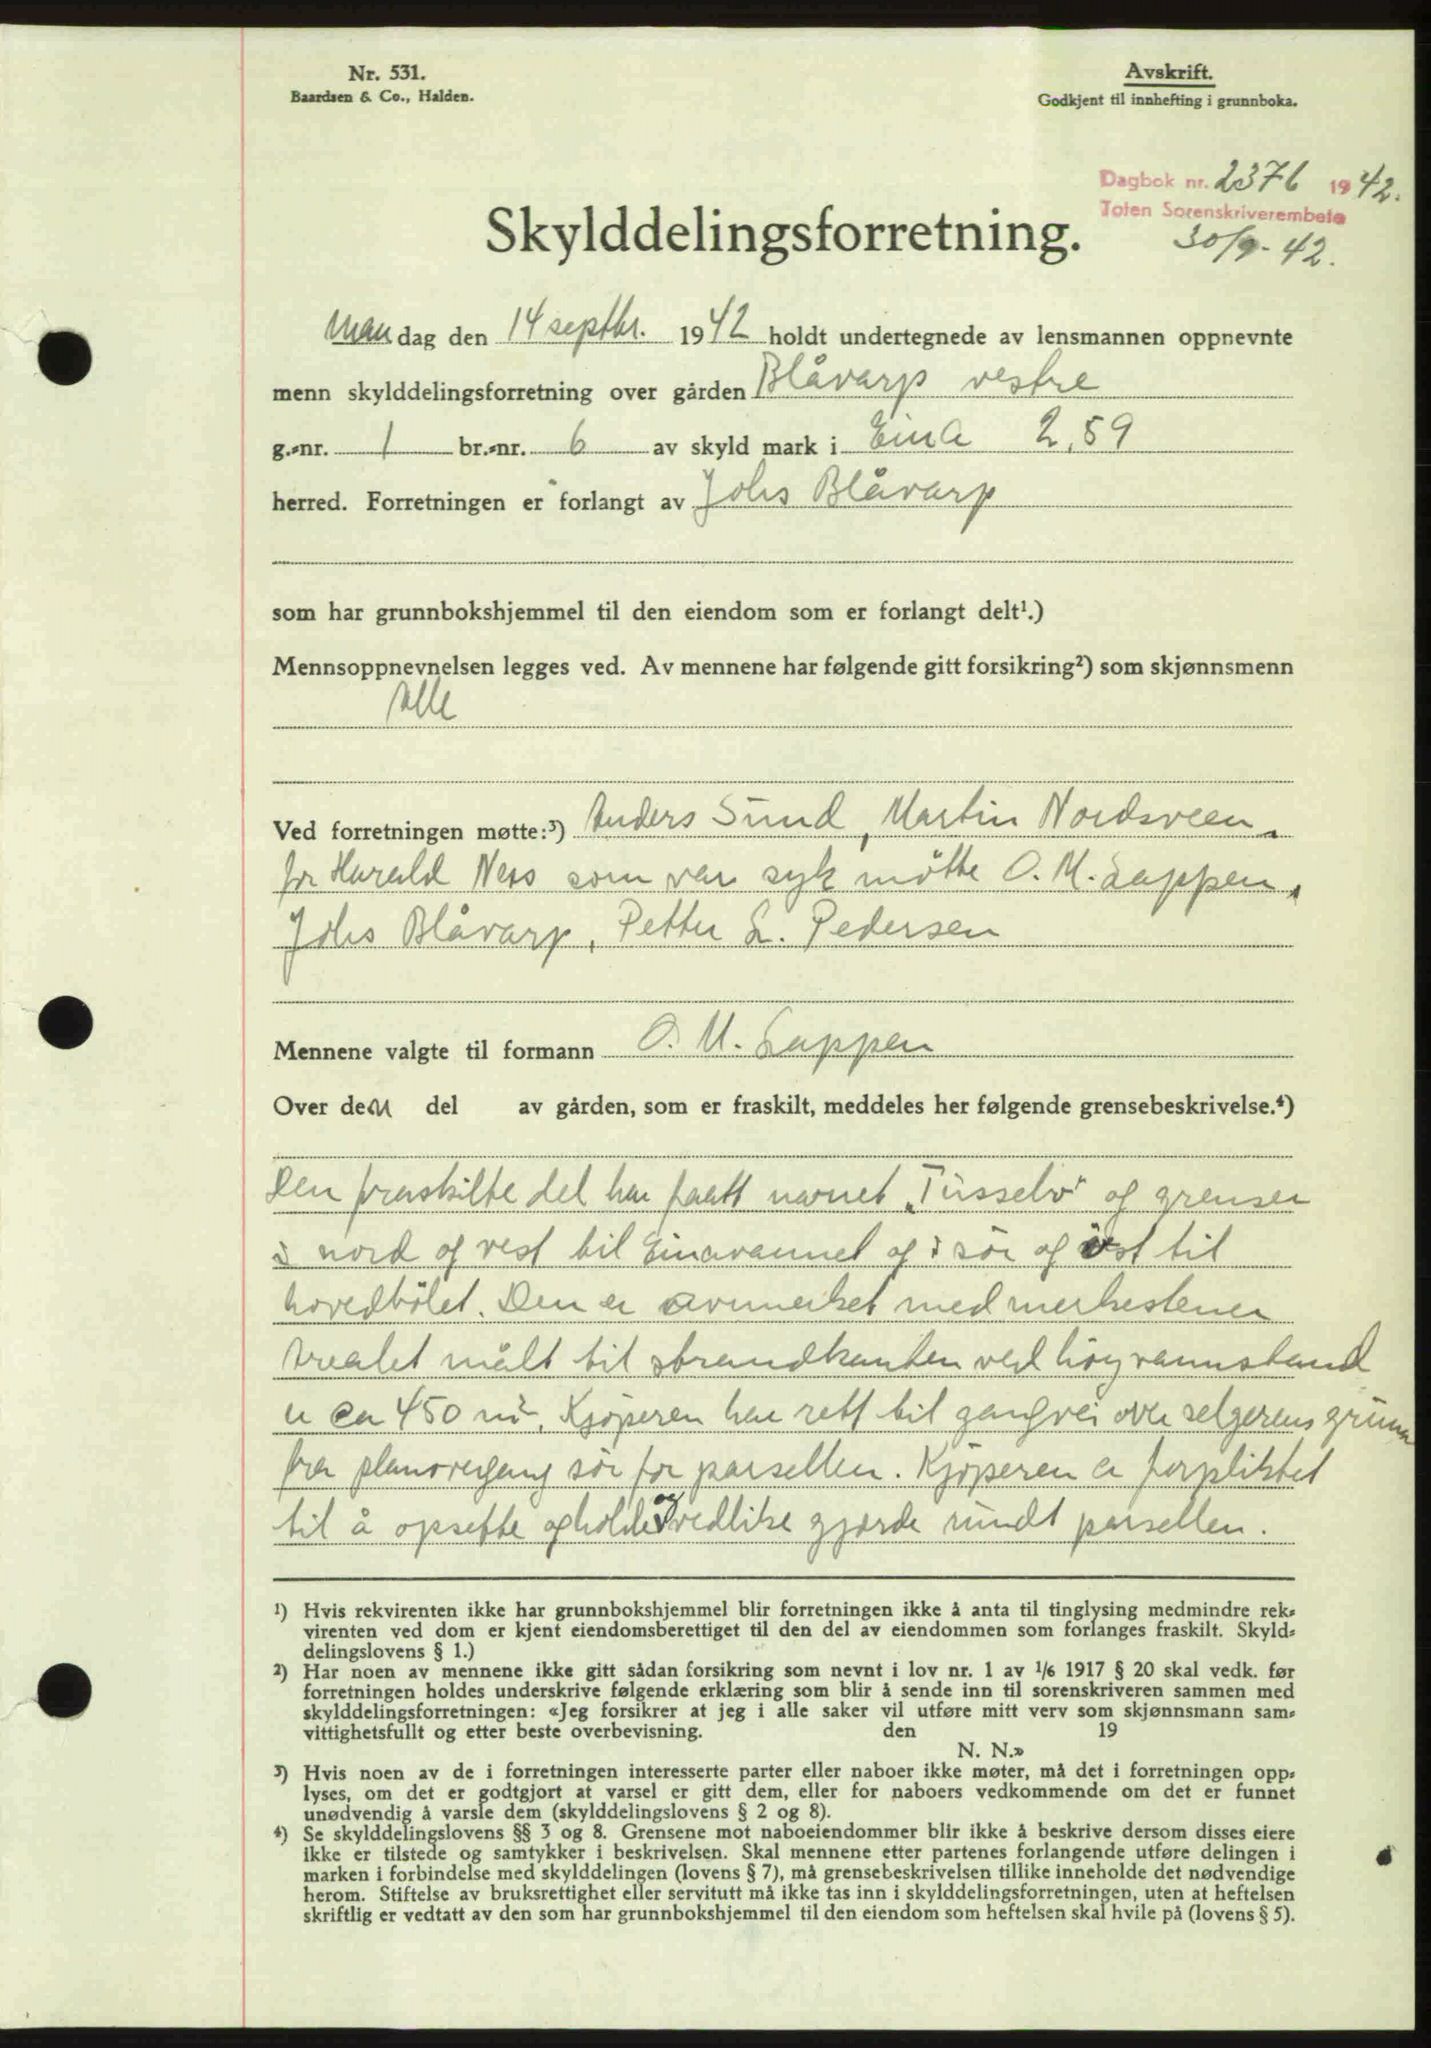 Nr. 531.
Baardsen & Co., Halden.
Avskrift.
Godkjent til innhefting i grunnboka.
Dagbok nr. 2376 1942.
Toten Sorenskriverembete
30/9-42.
Skylddelingsforretning.
Mandag den 14 septbr. 1942 holdt undertegnede av lensmannen oppnevnte
menn skylddelingsforretning over gården Blåvarp vestre
g.-nr. 1 br.-nr. 6 av skyld mark i Eina 2,59
herred. Forretningen er forlangt av Johs Blåvarp
som har grunnbokshjemmel til den eiendom som er forlangt delt¹.)
Mennsoppnevnelsen legges ved. Av mennene har følgende gitt forsikring²) som skjønnsmenn
Alle
Ved forretningen møtte:³) Anders Sund, Martin Nordsveen,
for Harald Ness som var syk møtte O. M. Lappen,
Johs Blåvarp, Petter L. Pedersen
Mennene valgte til formann O. M. Lappen
Over den del av gården, som er fraskilt, meddeles her følgende grensebeskrivelse.⁴)
Den fraskilte del har faatt navnet „Tusselv" og grenser
i nord og vest til Einavannet og i sør og øst til
hovedbölet. Den er avmerket med merkestener
Arealet målt til strandkanten ved höyvannstand
er ca 450 m². Kjöperen har rett til gangvei over selgerens grunn
fra planovergang sör for parsellen. Kjöperen er forpliktet
til å opsette og holde og vedlike gjærde rundt parsellen.
¹) Hvis rekvirenten ikke har grunnbokshjemmel blir forretningen ikke å anta til tinglysing medmindre rek-
virenten ved dom er kjent eiendomsberettiget til den del av eiendommen som forlanges fraskilt. Skyld-
delingslovens § 1.)
²) Har noen av mennene ikke gitt sådan forsikring som nevnt i lov nr. 1 av 1/6 1917 § 20 skal vedk. før
forretningen holdes underskrive følgende erklæring som blir å sende inn til sorenskriveren sammen med
skylddelingsforretningen: «Jeg forsikrer at jeg i alle saker vil utføre mitt verv som skjønnsmann sam-
vittighetsfullt og etter beste overbevisning. den 19
N. N.»
³) Hvis noen av de i forretningen interesserte parter eller naboer ikke møter, må det i forretningen opp-
lyses, om det er godtgjort at varsel er gitt dem, eller for naboers vedkommende om det er funnet
unødvendig å varsle dem (skylddelingslovens § 2 og 8).
⁴) Se skylddelingslovens §§ 3 og 8. Grensene mot naboeiendommer blir ikke å beskrive dersom disses eiere
ikke er tilstede og samtykker i beskrivelsen. Skal mennene etter partenes forlangende utføre delingen i
marken i forbindelse med skylddelingen (lovens § 7), må grensebeskrivelsen tillike inneholde det nødvendige
herom. Stiftelse av bruksrettighet eller servitutt må ikke tas inn i skylddelingsforretningen, uten at heftelsen
skriftlig er vedtatt av den som har grunnbokshjemmel til den eiendom som heftelsen skal hvile på (lovens § 5).